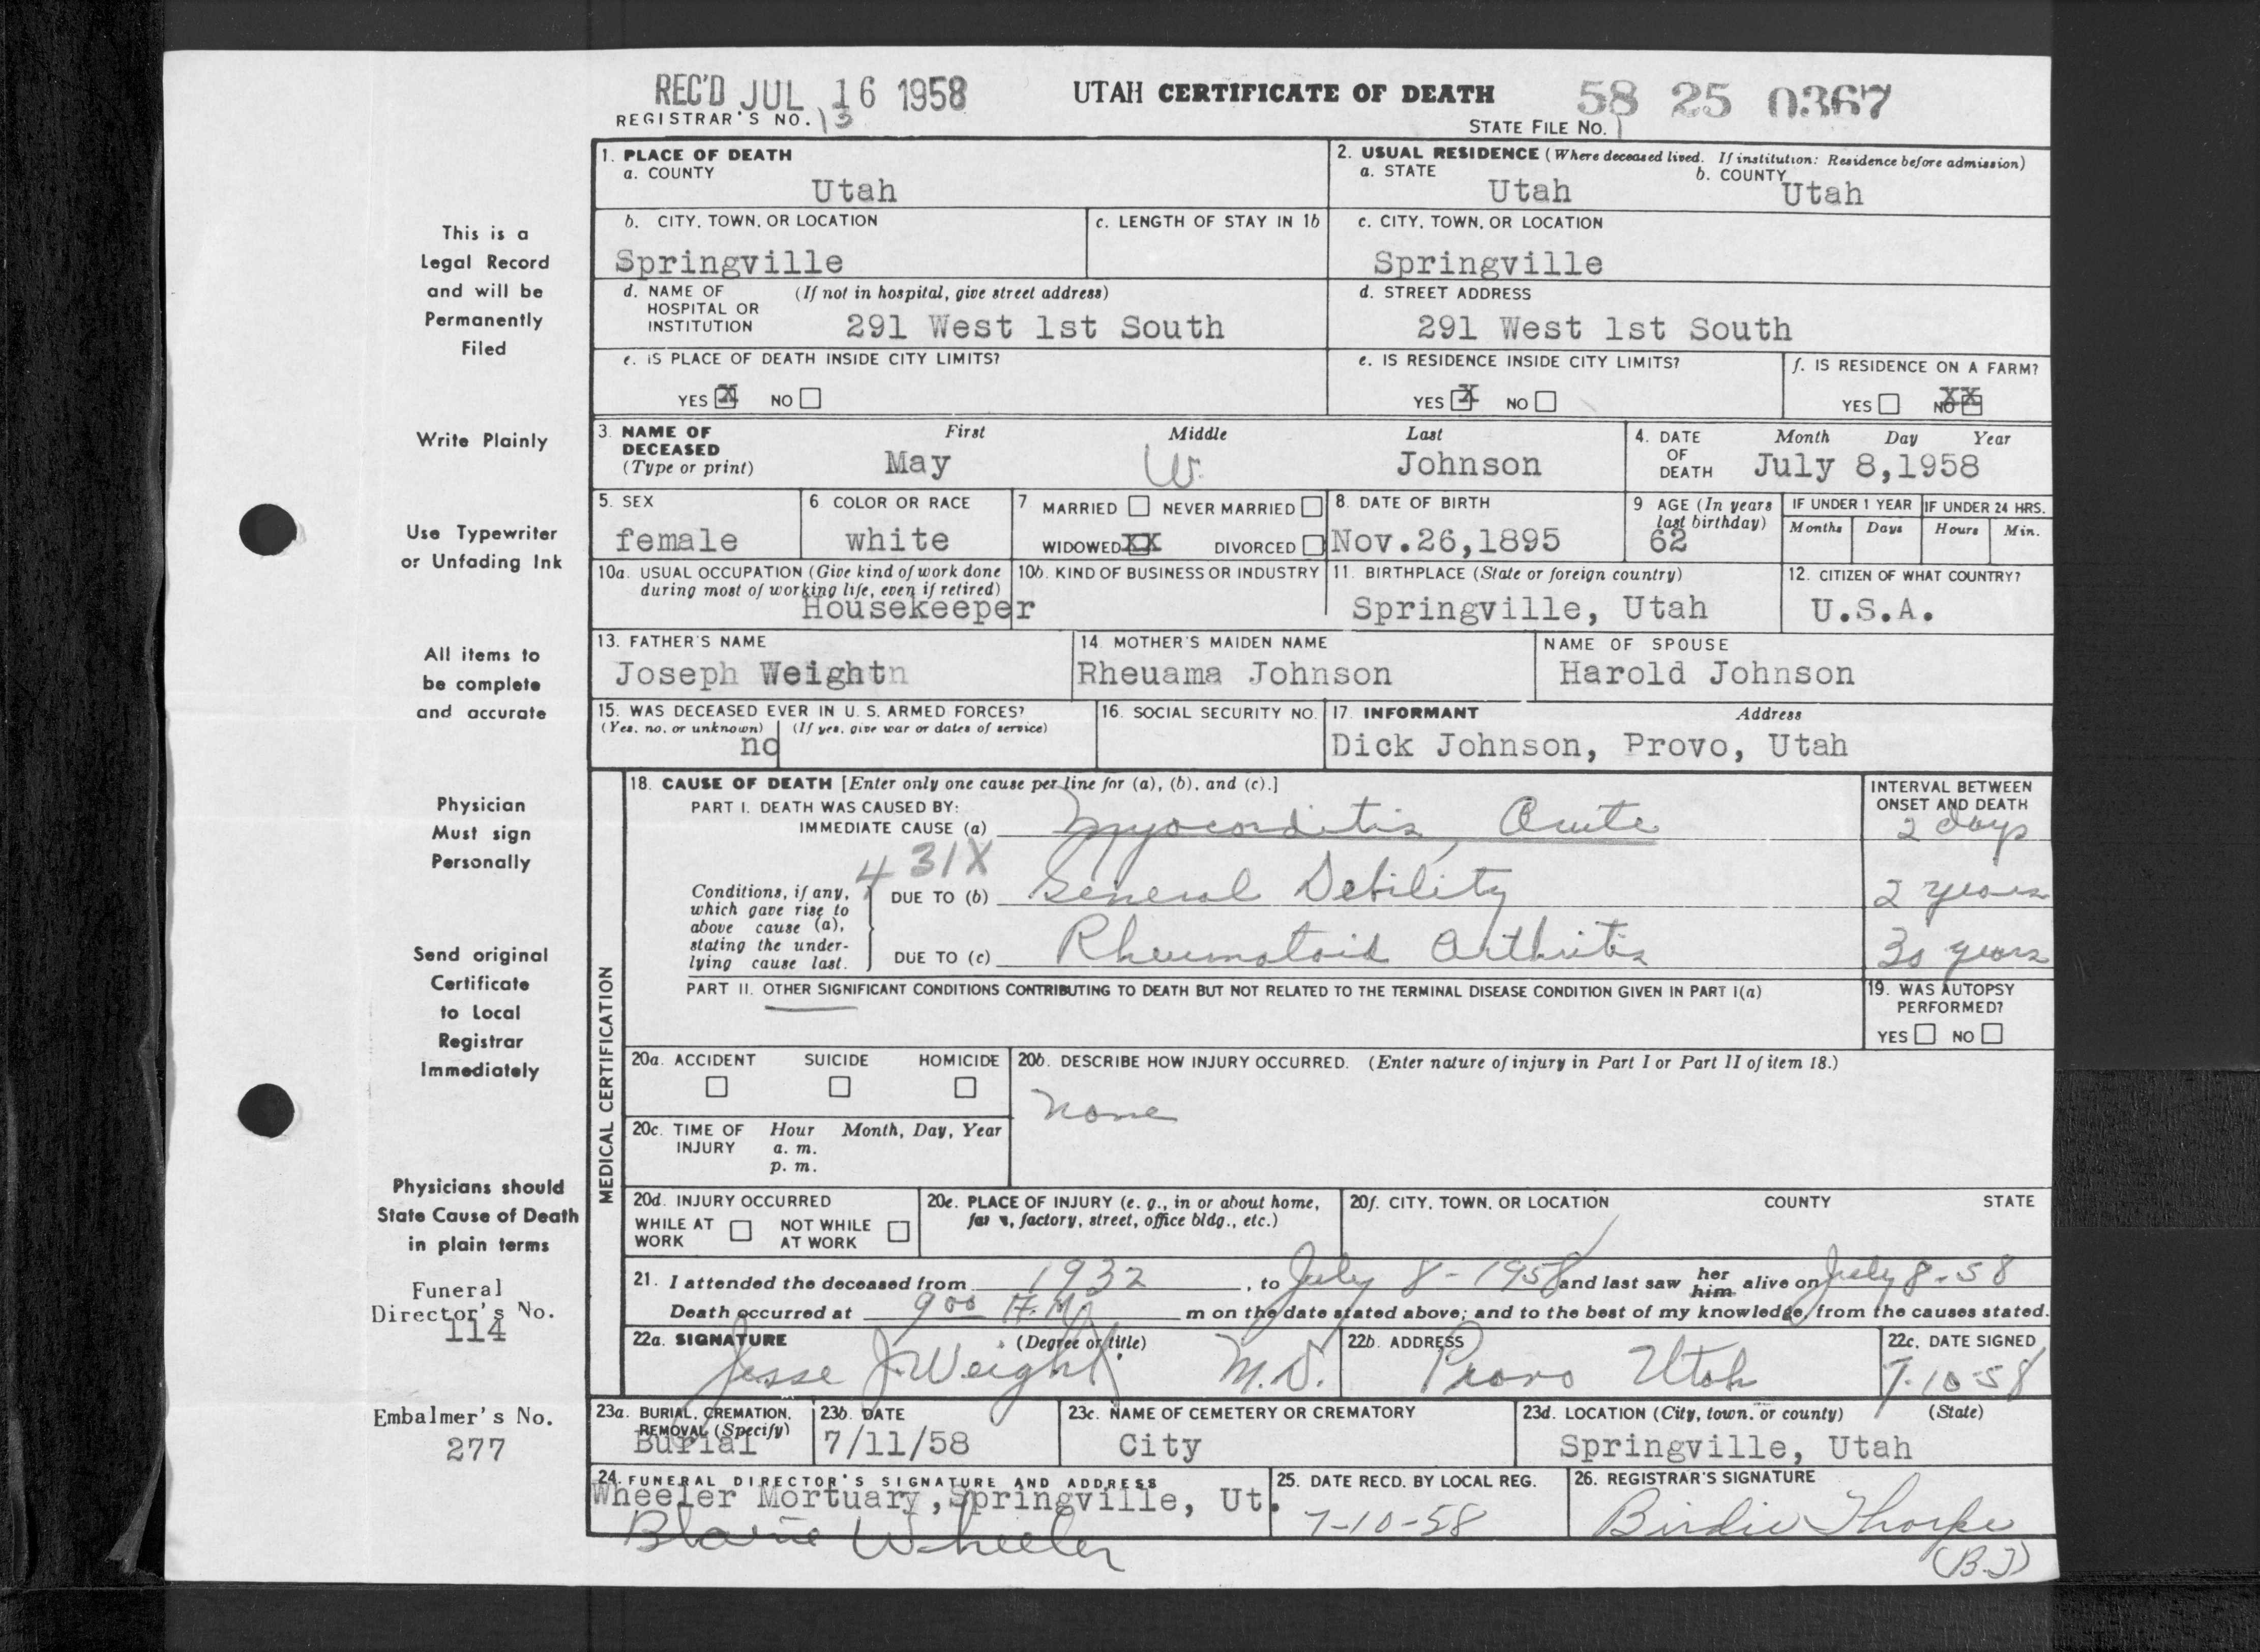 REC'D JUL 16 1958
UTAH CERTIFICATE OF DEATH
58 25 0367
REGISTRAR'S NO. 13
STATE FILE NO.
This is a
Legal Record
and will be
Permanently
Filed
Write Plainly
Use Typewriter
or Unfading Ink
All items to
be complete
and accurate
Physician
Must sign
Personally
Send original
Certificate
to Local
Registrar
Immediately
Physicians should
State Cause of Death
in plain terms
Funeral
Director's No.
114
Embalmer's No.
277
1. PLACE OF DEATH
a. COUNTY
Utah
2. USUAL RESIDENCE (Where deceased lived. If institution: Residence before admission)
a. STATE
Utah
b. COUNTY
Utah
b. CITY, TOWN, OR LOCATION
Springville
c. LENGTH OF STAY IN 1b
c. CITY, TOWN, OR LOCATION
Springville
d. NAME OF (If not in hospital, give street address)
HOSPITAL OR
INSTITUTION 291 West 1st South
d. STREET ADDRESS
291 West 1st South
e. IS PLACE OF DEATH INSIDE CITY LIMITS?
YES X NO
e. IS RESIDENCE INSIDE CITY LIMITS?
YES X NO
f. IS RESIDENCE ON A FARM?
YES NO XX
3. NAME OF DECEASED (Type or print)
First Middle Last
May W. Johnson
4. DATE OF DEATH
Month Day Year
July 8,1958
5. SEX
female
6. COLOR OR RACE
white
7 MARRIED NEVER MARRIED
WIDOWED XX DIVORCED
8. DATE OF BIRTH
Nov.26,1895
9 AGE (In years
last birthday)
62
IF UNDER 1 YEAR
Months Days
IF UNDER 24 HRS.
Hours Min.
10a. USUAL OCCUPATION (Give kind of work done
during most of working life, even if retired)
Housekeeper
10b. KIND OF BUSINESS OR INDUSTRY
11. BIRTHPLACE (State or foreign country)
Springville, Utah
12. CITIZEN OF WHAT COUNTRY?
U.S.A.
13. FATHER'S NAME
Joseph Weightn
14. MOTHER'S MAIDEN NAME
Rheuama Johnson
NAME OF SPOUSE
Harold Johnson
15. WAS DECEASED EVER IN U. S. ARMED FORCES?
(Yes, no, or unknown) (If yes, give war or dates of service)
no
16. SOCIAL SECURITY NO.
17. INFORMANT Address
Dick Johnson, Provo, Utah
MEDICAL CERTIFICATION
18. CAUSE OF DEATH [Enter only one cause per line for (a), (b), and (c).]
PART I. DEATH WAS CAUSED BY:
IMMEDIATE CAUSE (a) Myocarditis, Acute
INTERVAL BETWEEN
ONSET AND DEATH
2 days
431X
Conditions, if any,
which gave rise to
above cause (a),
stating the under-
lying cause last.
DUE TO (b) General Debility
2 years
DUE TO (c) Rheumatoid Arthritis
30 years
PART II. OTHER SIGNIFICANT CONDITIONS CONTRIBUTING TO DEATH BUT NOT RELATED TO THE TERMINAL DISEASE CONDITION GIVEN IN PART I(a)
19. WAS AUTOPSY
PERFORMED?
YES NO
20a. ACCIDENT SUICIDE HOMICIDE
20b. DESCRIBE HOW INJURY OCCURRED. (Enter nature of injury in Part I or Part II of item 18.)
None
20c. TIME OF Hour Month, Day, Year
INJURY a. m.
p. m.
20d. INJURY OCCURRED
WHILE AT WORK NOT WHILE AT WORK
20e. PLACE OF INJURY (e. g., in or about home,
farm, factory, street, office bldg., etc.)
20f. CITY, TOWN, OR LOCATION COUNTY STATE
21. I attended the deceased from 1932, to July 8-1958 and last saw her him alive on July 8-58
Death occurred at 9 00 A.M. m on the date stated above; and to the best of my knowledge, from the causes stated.
22a. SIGNATURE (Degree or title)
Jesse J. Weight M.D.
22b. ADDRESS
Provo Utah
22c. DATE SIGNED
7-10-58
23a. BURIAL, CREMATION,
REMOVAL (Specify)
Burial
23b. DATE
7/11/58
23c. NAME OF CEMETERY OR CREMATORY
City
23d. LOCATION (City, town, or county) (State)
Springville, Utah
24. FUNERAL DIRECTOR'S SIGNATURE AND ADDRESS
Wheeler Mortuary, Springville, Ut.
Blaine Wheeler
25. DATE RECD. BY LOCAL REG.
7-10-58
26. REGISTRAR'S SIGNATURE
Birdie Thorpe
(B.J)